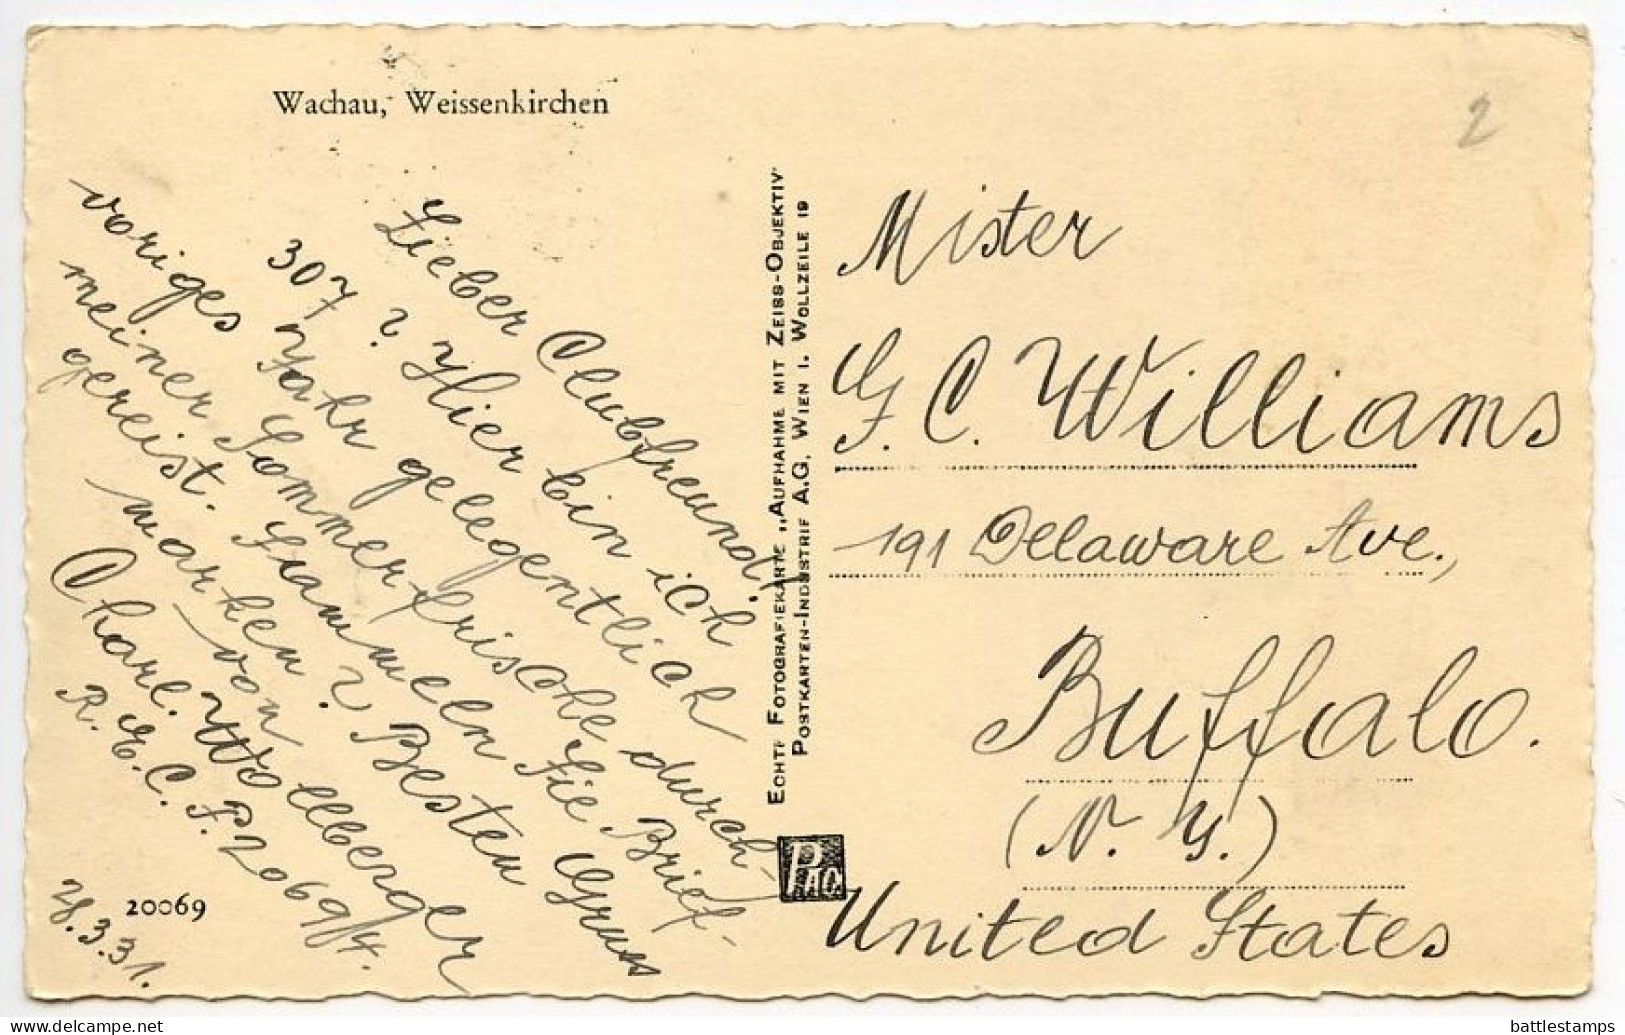 Wachau, Weissenkirchen
2
Lieber Clubfreund!
307? Hier bin ich
voriges Jahr gelegentlich
meiner Sommerfrische durch-
gereist. Sammeln Sie Brief-
marken? Besten Gruss
von
Charl. Wollberger
R. E. C. F. 2069/4.
28.3.31.
20069
ECHTE FOTOGRAFIEKARTE „AUFNAHME MIT ZEISS-OBJEKTIV"
POSTKARTEN-INDUSTRIE A.G. WIEN I. WOLLZEILE 19
PAG.
Mister
G. C. Williams
191 Delaware Ave.,
Buffalo.
(N. Y.)
United States
www.delcampe.net
battlestamps